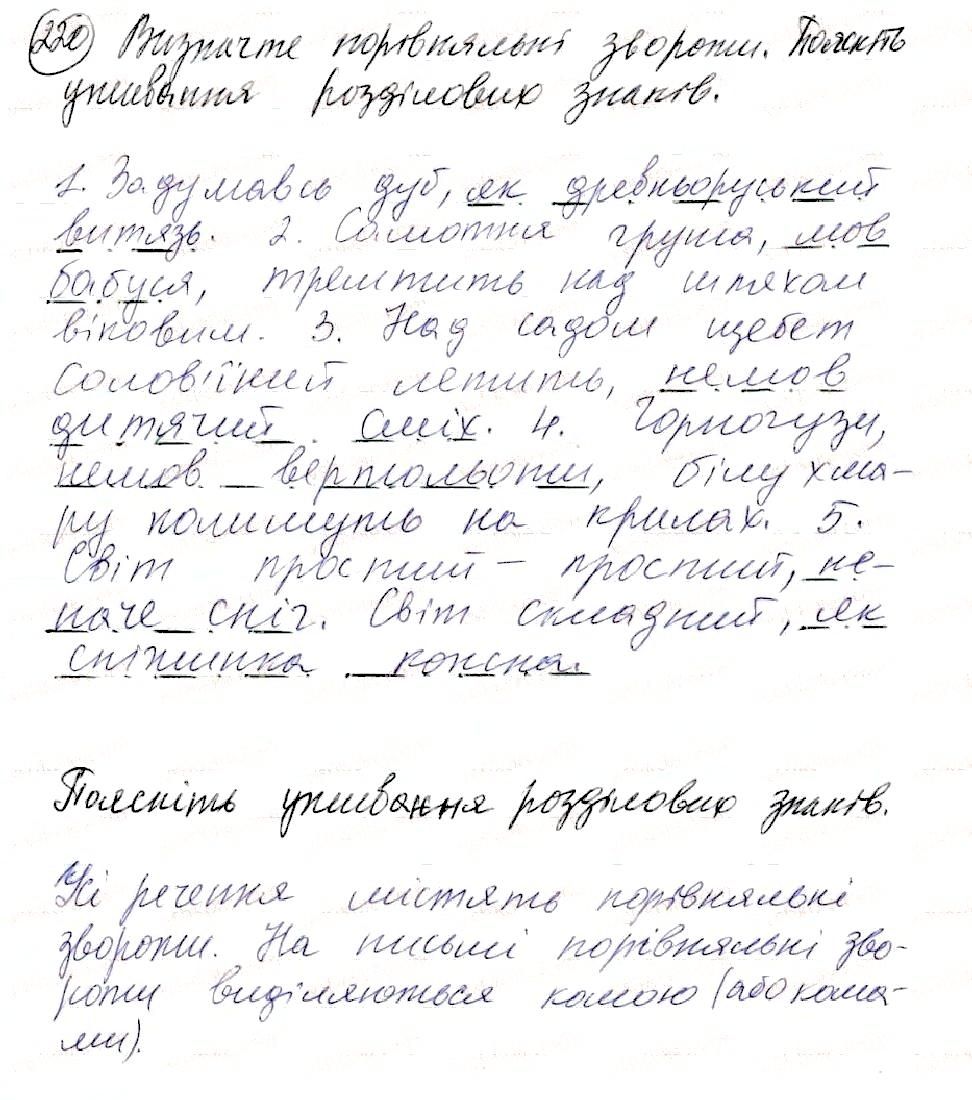 220 Визначте порівняльні звороти. Поясніть
уживання розділових знаків.
1. Задумавсь дуб, як древньоруський
витязь. 2. Самотня груша, мов
бабуся, тремтить над шляхом
віковим. 3. Над садом щебет
солов'їний летить, немов
дитячий сміх. 4. Чорногузи,
немов вертольоти, білу хма-
ру нестимуть на крилах. 5.
Світ простий – простий, не-
наче сніг. Світ складний, як
сніжинка кожна.
Поясніть уживання розділових знаків.
Усі речення містять порівняльні
звороти. На письмі порівняльні зво-
роти виділяються комою (або кома-
ми).